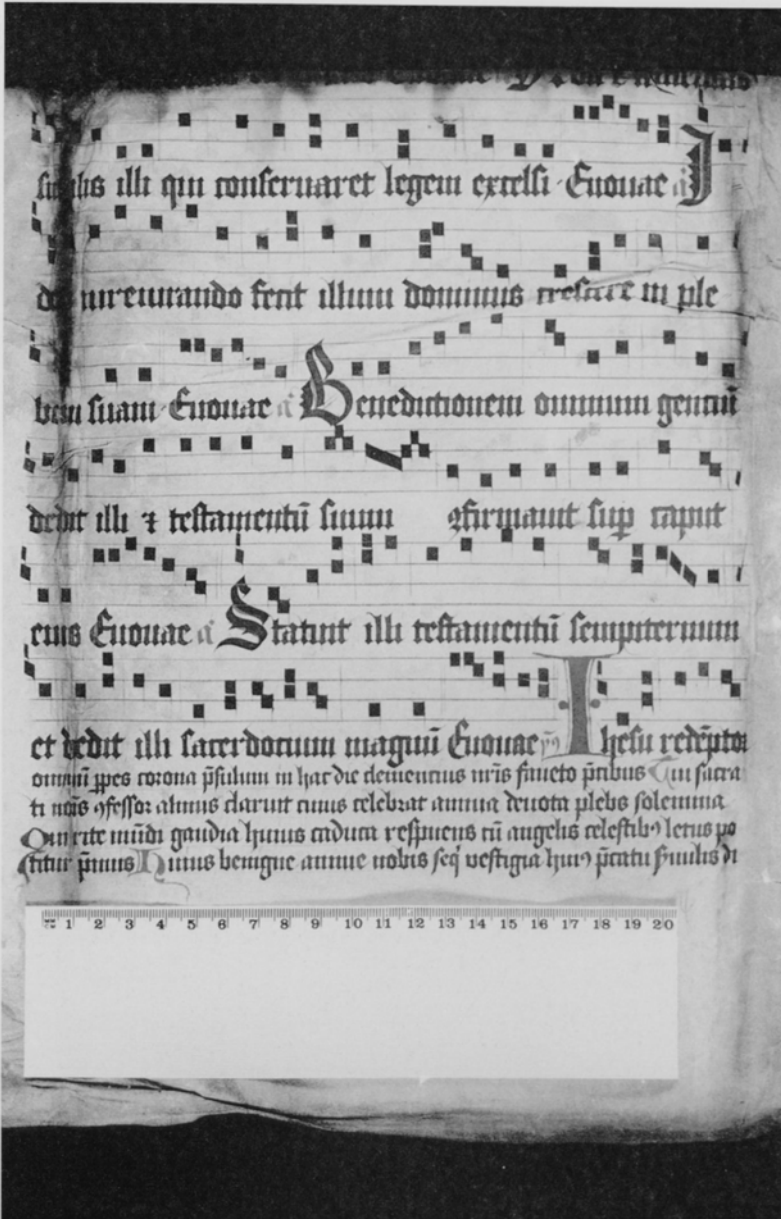 similis illi qui conseruaret legem excelsi Euouae a͞ J
do iureiurando fecit illum dominus crescere in ple
bem suam Euouae a͞ Benedictionem omnium gentiū
dedit illi ⁊ testamentū suum ꝯfirmauit suꝑ caput
eius Euouae a͞ Statuit illi testamentū sempiternum
et dedit illi sacerdotium magnū Euouae ymꝰ Ihesu redēptor
omniū ꝑpes corona p̄sulum in hac die clementius nr̄is faueto p̄cibus Tui sacra
ti noīs ꝯfessor almus claruit cuius celebrat annua deuota plebs solemnia
Qui rite mūdi gaudia huius caduca respuens cū angelis celestibꝰ letus po
titur p̄miis Huius benigne annue nobis seq̄ vestigia huiꝰ p̄catu fꝰmulis di
1 2 3 4 5 6 7 8 9 10 11 12 13 14 15 16 17 18 19 20